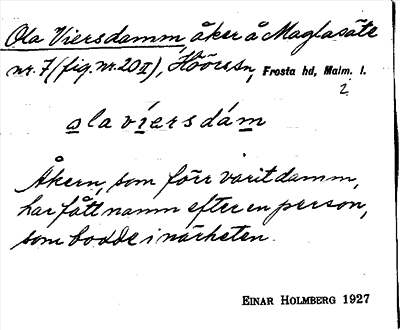 Ola Viersdamm, åker å Maglasäte
nr. 7 (fig. nr. 20 II), Höörssn, Frosta hd, Malm. l.
2.
ola víersdám
Åkern, som förr varit damm,
har fått namn efter en person,
som bodde i närheten.
EINAR HOLMBERG 1927